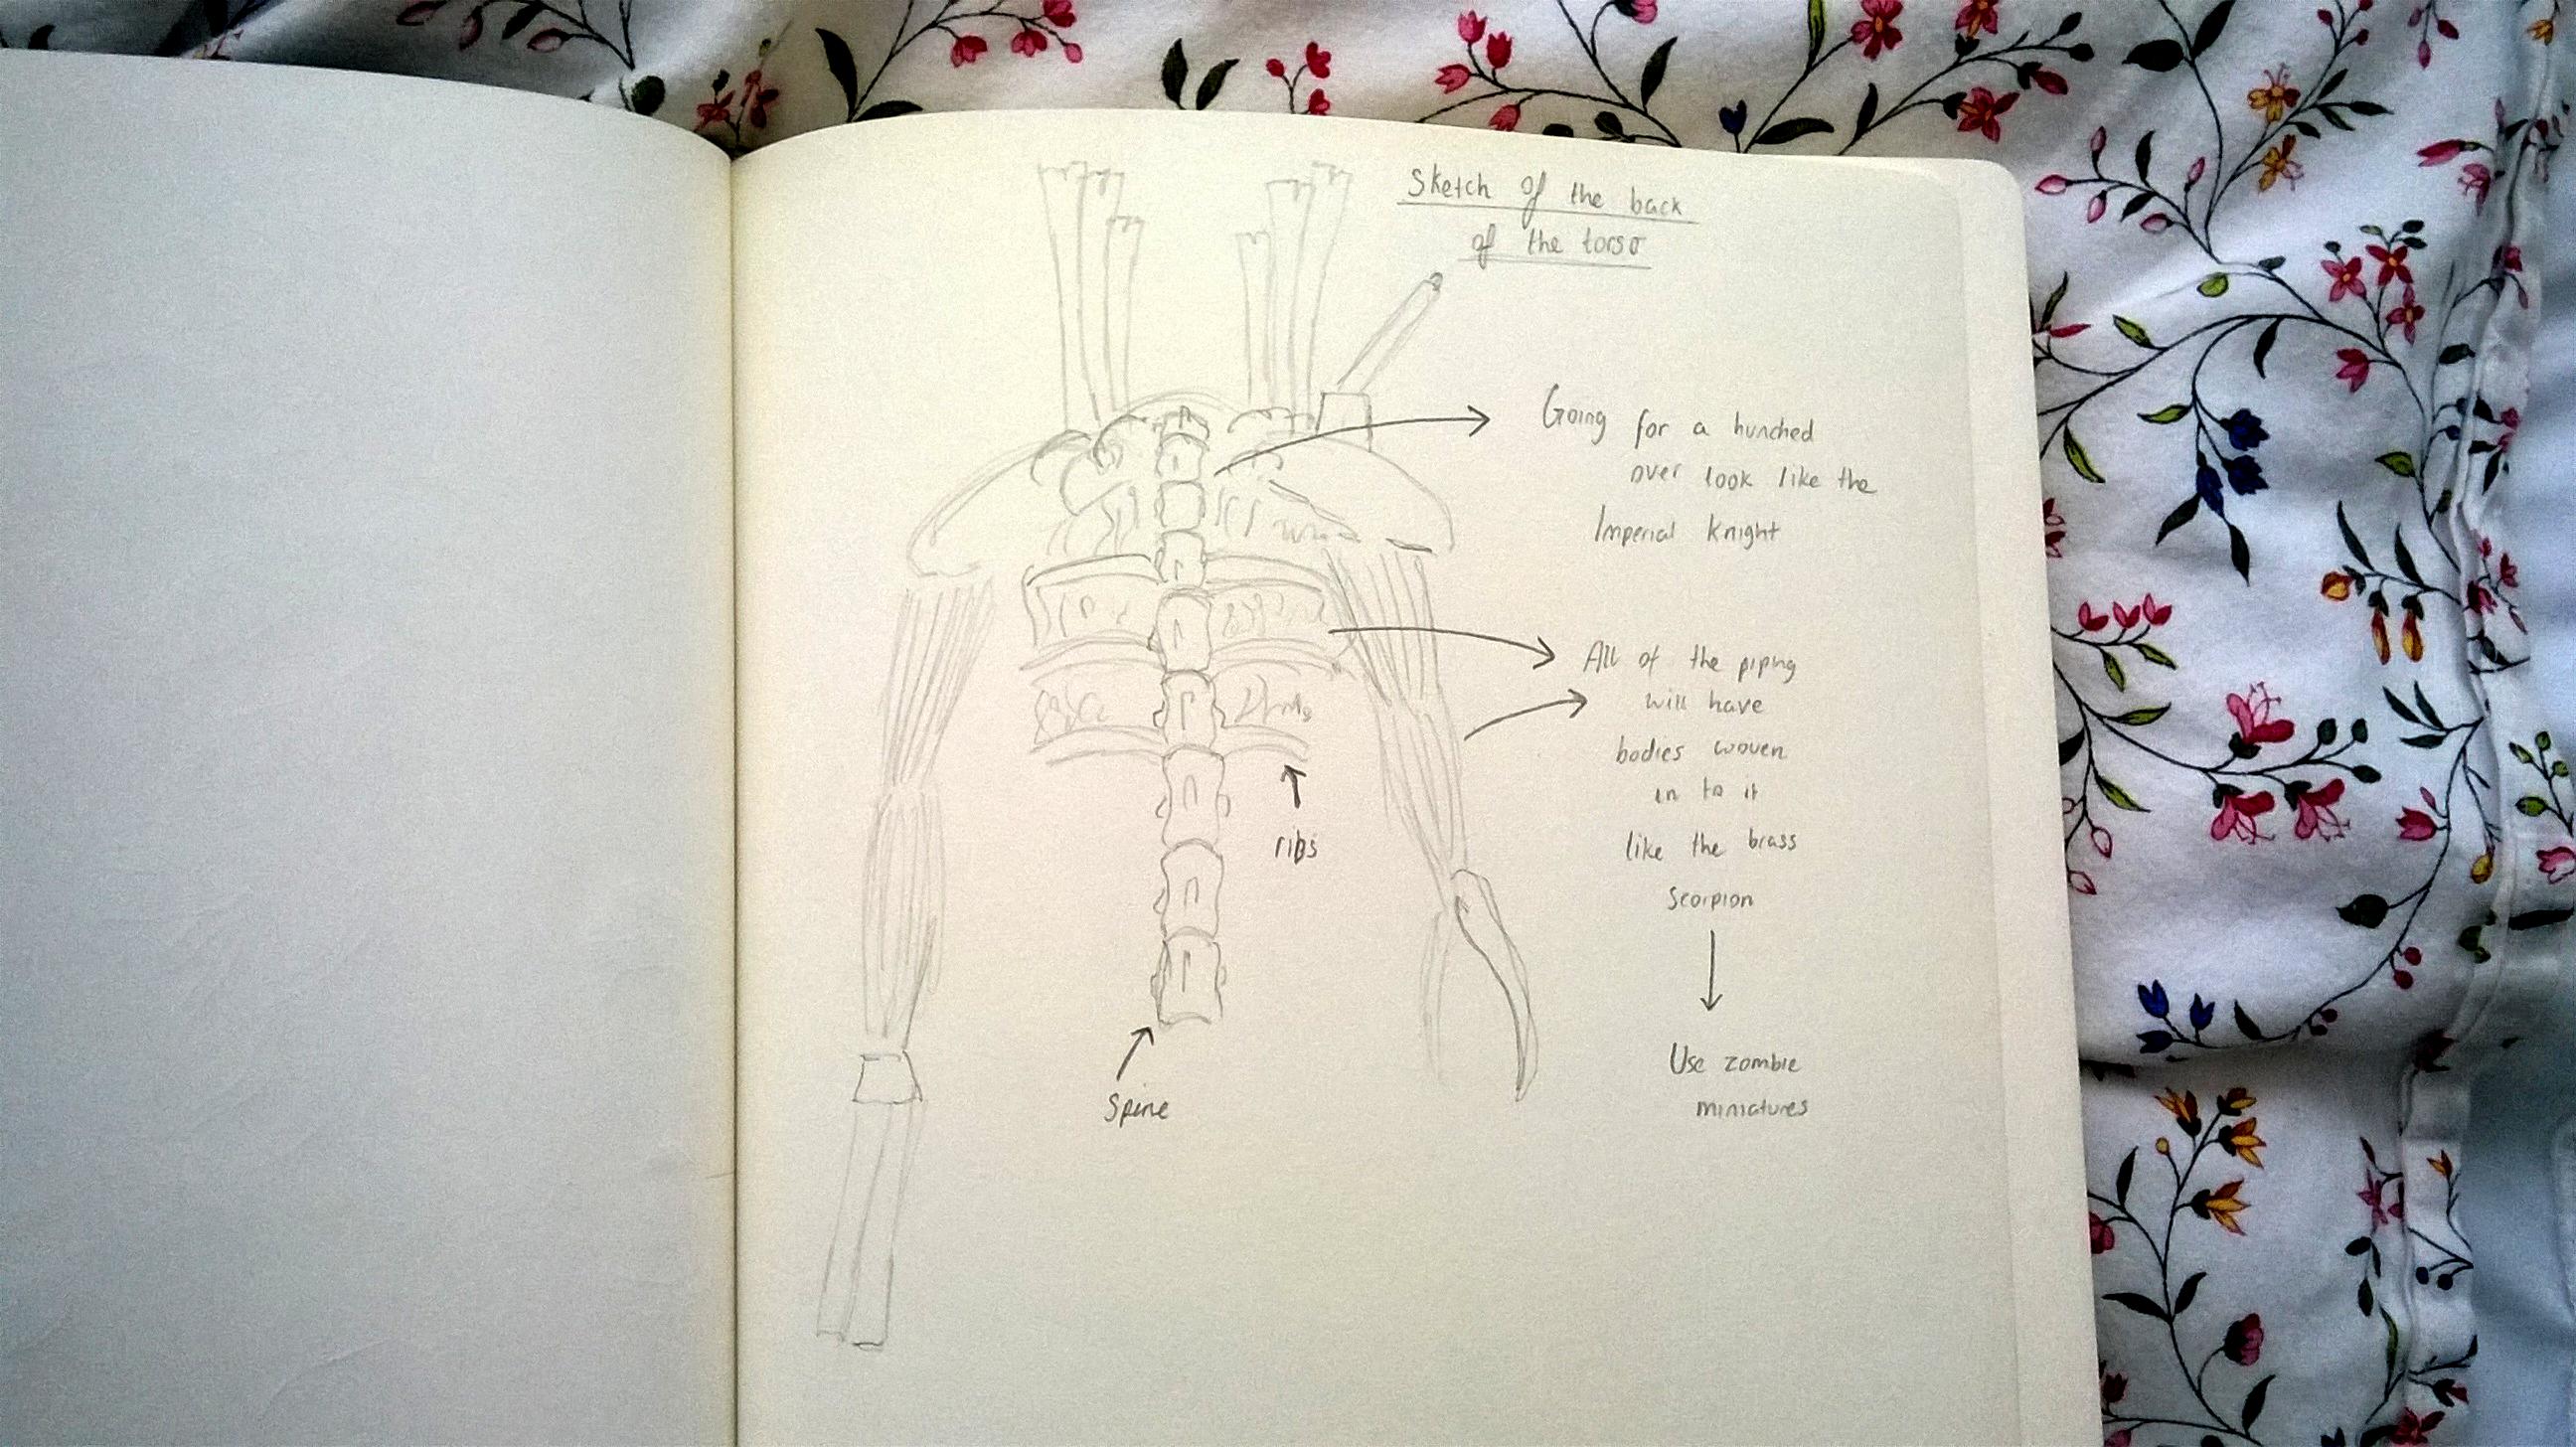 Sketch of the back
of the torso
Going for a hunched
over look like the
Imperial Knight
All of the piping
will have
bodies woven
in to it
like the brass
scorpion
Use zombie
miniatures
ribs
Spine